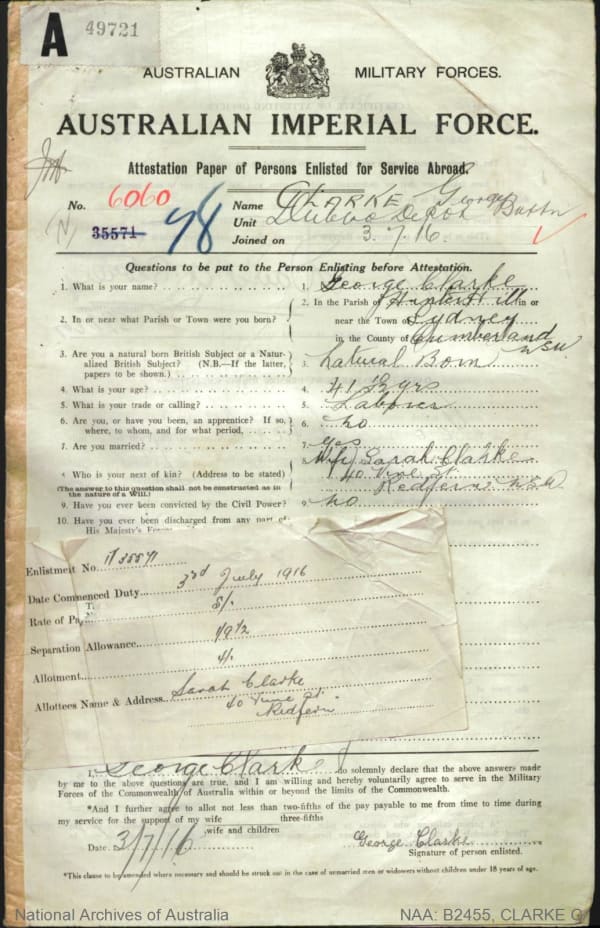 A 49721
AUSTRALIAN MILITARY FORCES.
AUSTRALIAN IMPERIAL FORCE.
Attestation Paper of Persons Enlisted for Service Abroad.
No. 6060
35571
Name CLARKE George
Unit Dubbo Depot Battn
Joined on 3.7.16.
Questions to be put to the Person Enlisting before Attestation.
1. What is your name? 1. George Clarke
2. In or near what Parish or Town were you born? 2. In the Parish of Hunters Hill in or
near the Town of Sydney
in the County of Cumberland NSW
3. Are you a natural born British Subject or a Natur-
alized British Subject? (N.B.—If the latter,
papers to be shown.) 3. Natural Born
4. What is your age? 4. 41
5. What is your trade or calling? 5. Labourer
6. Are you, or have you been, an apprentice? If so,
where, to whom, and for what period. 6. no
7. Are you married? 7. Yes
8. Who is your next of kin? (Address to be stated) 8. Wife Sarah Clarke
40
Redfern NSW
(The answer to this question shall not be construed as in
the nature of a Will.)
9. Have you ever been convicted by the Civil Power? 9. no
10. Have you ever been discharged from any part of
His Majesty's
Enlistment No. 35571
Date Commenced Duty 3rd July 1916
Rate of Pay 5/.
Separation Allowance
Allotment 4/.
Allottees Name & Address Sarah Clarke
40
Redfern
I, George Clarke do solemnly declare that the above answers made
by me to the above questions are true, and I am willing and hereby voluntarily agree to serve in the Military
Forces of the Commonwealth of Australia within or beyond the limits of the Commonwealth.
*And I further agree to allot not less than two-fifths of the pay payable to me from time to time during
three-fifths
my service for the support of my wife
wife and children
Date 3/7/16 George Clarke
Signature of person enlisted.
*This clause to be amended where necessary and should be struck out in the case of unmarried men or widowers without children under 18 years of age.
National Archives of Australia NAA: B2455, CLARKE G